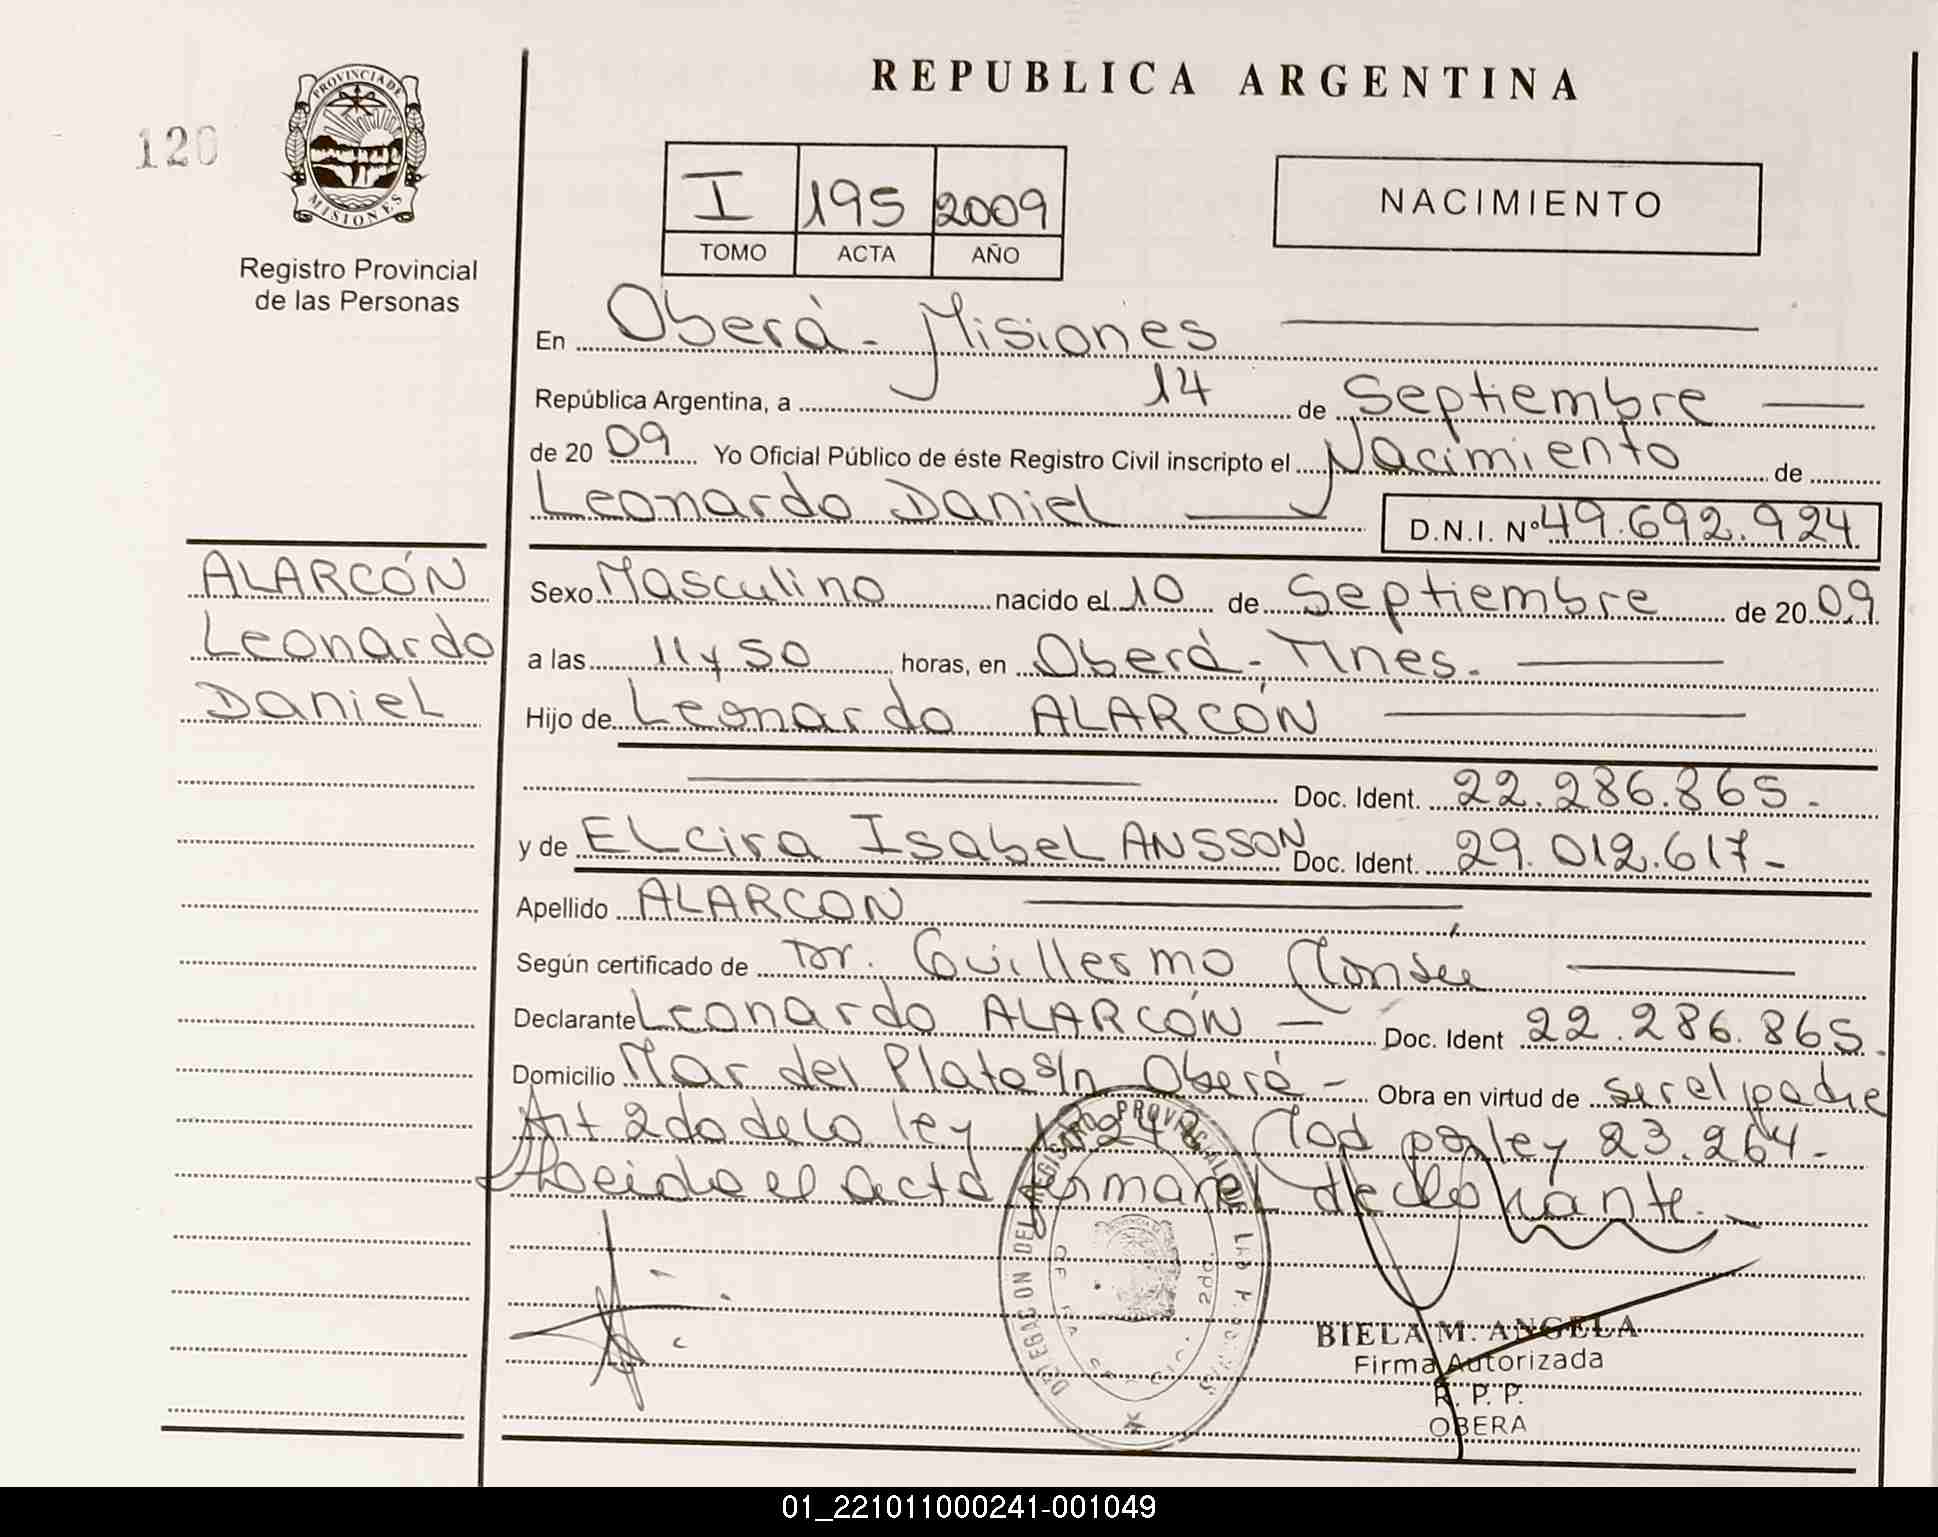 REPUBLICA ARGENTINA
120
PROVINCIA DE
MISIONES
Registro Provincial
de las Personas
I 195 2009
TOMO ACTA AÑO
NACIMIENTO
En Oberá - Misiones
República Argentina, a 14 de Septiembre
de 20 09 Yo Oficial Público de éste Registro Civil inscripto el Nacimiento de
Leonardo Daniel D.N.I. Nº 49.692.924
ALARCÓN
Leonardo
Daniel
Sexo Masculino nacido el 10 de Septiembre de 20 09
a las 11 y 50 horas, en Oberá - Mnes.
Hijo de Leonardo ALARCÓN
Doc. Ident. 22.286.865.
y de ELcira Isabel ANSSON Doc. Ident. 29.012.617-
Apellido ALARCON
Según certificado de Dr. Guillermo
Declarante Leonardo ALARCÓN - Doc. Ident 22.286.865.
Domicilio Mar del Plata s/n Oberá - Obra en virtud de ser el padre
Art 2do de la ley Mod por ley 23.264.-
Leida el acta firma el declarante.-
DELEGACION DEL REGISTRO PROVINCIAL DE LAS PERSONAS
BIELA M. ANGELA
Firma Autorizada
R. P. P.
OBERA
01_221011000241-001049